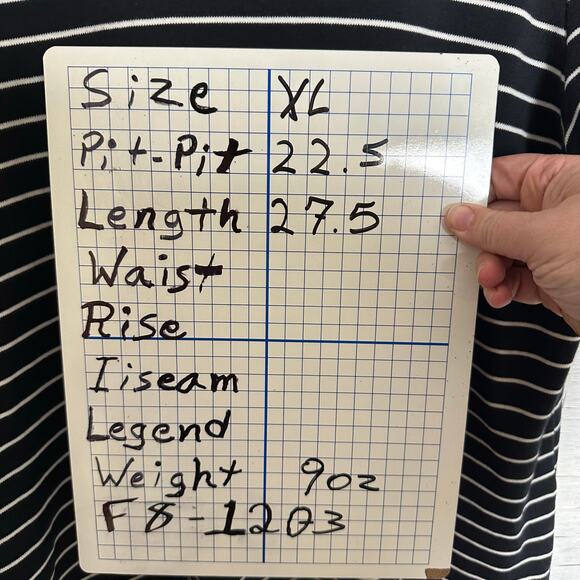 Size XL
Pit-Pit 22.5
Length 27.5
Waist
Rise
Iiseam
Legend
Weight 9oz
F8-1203